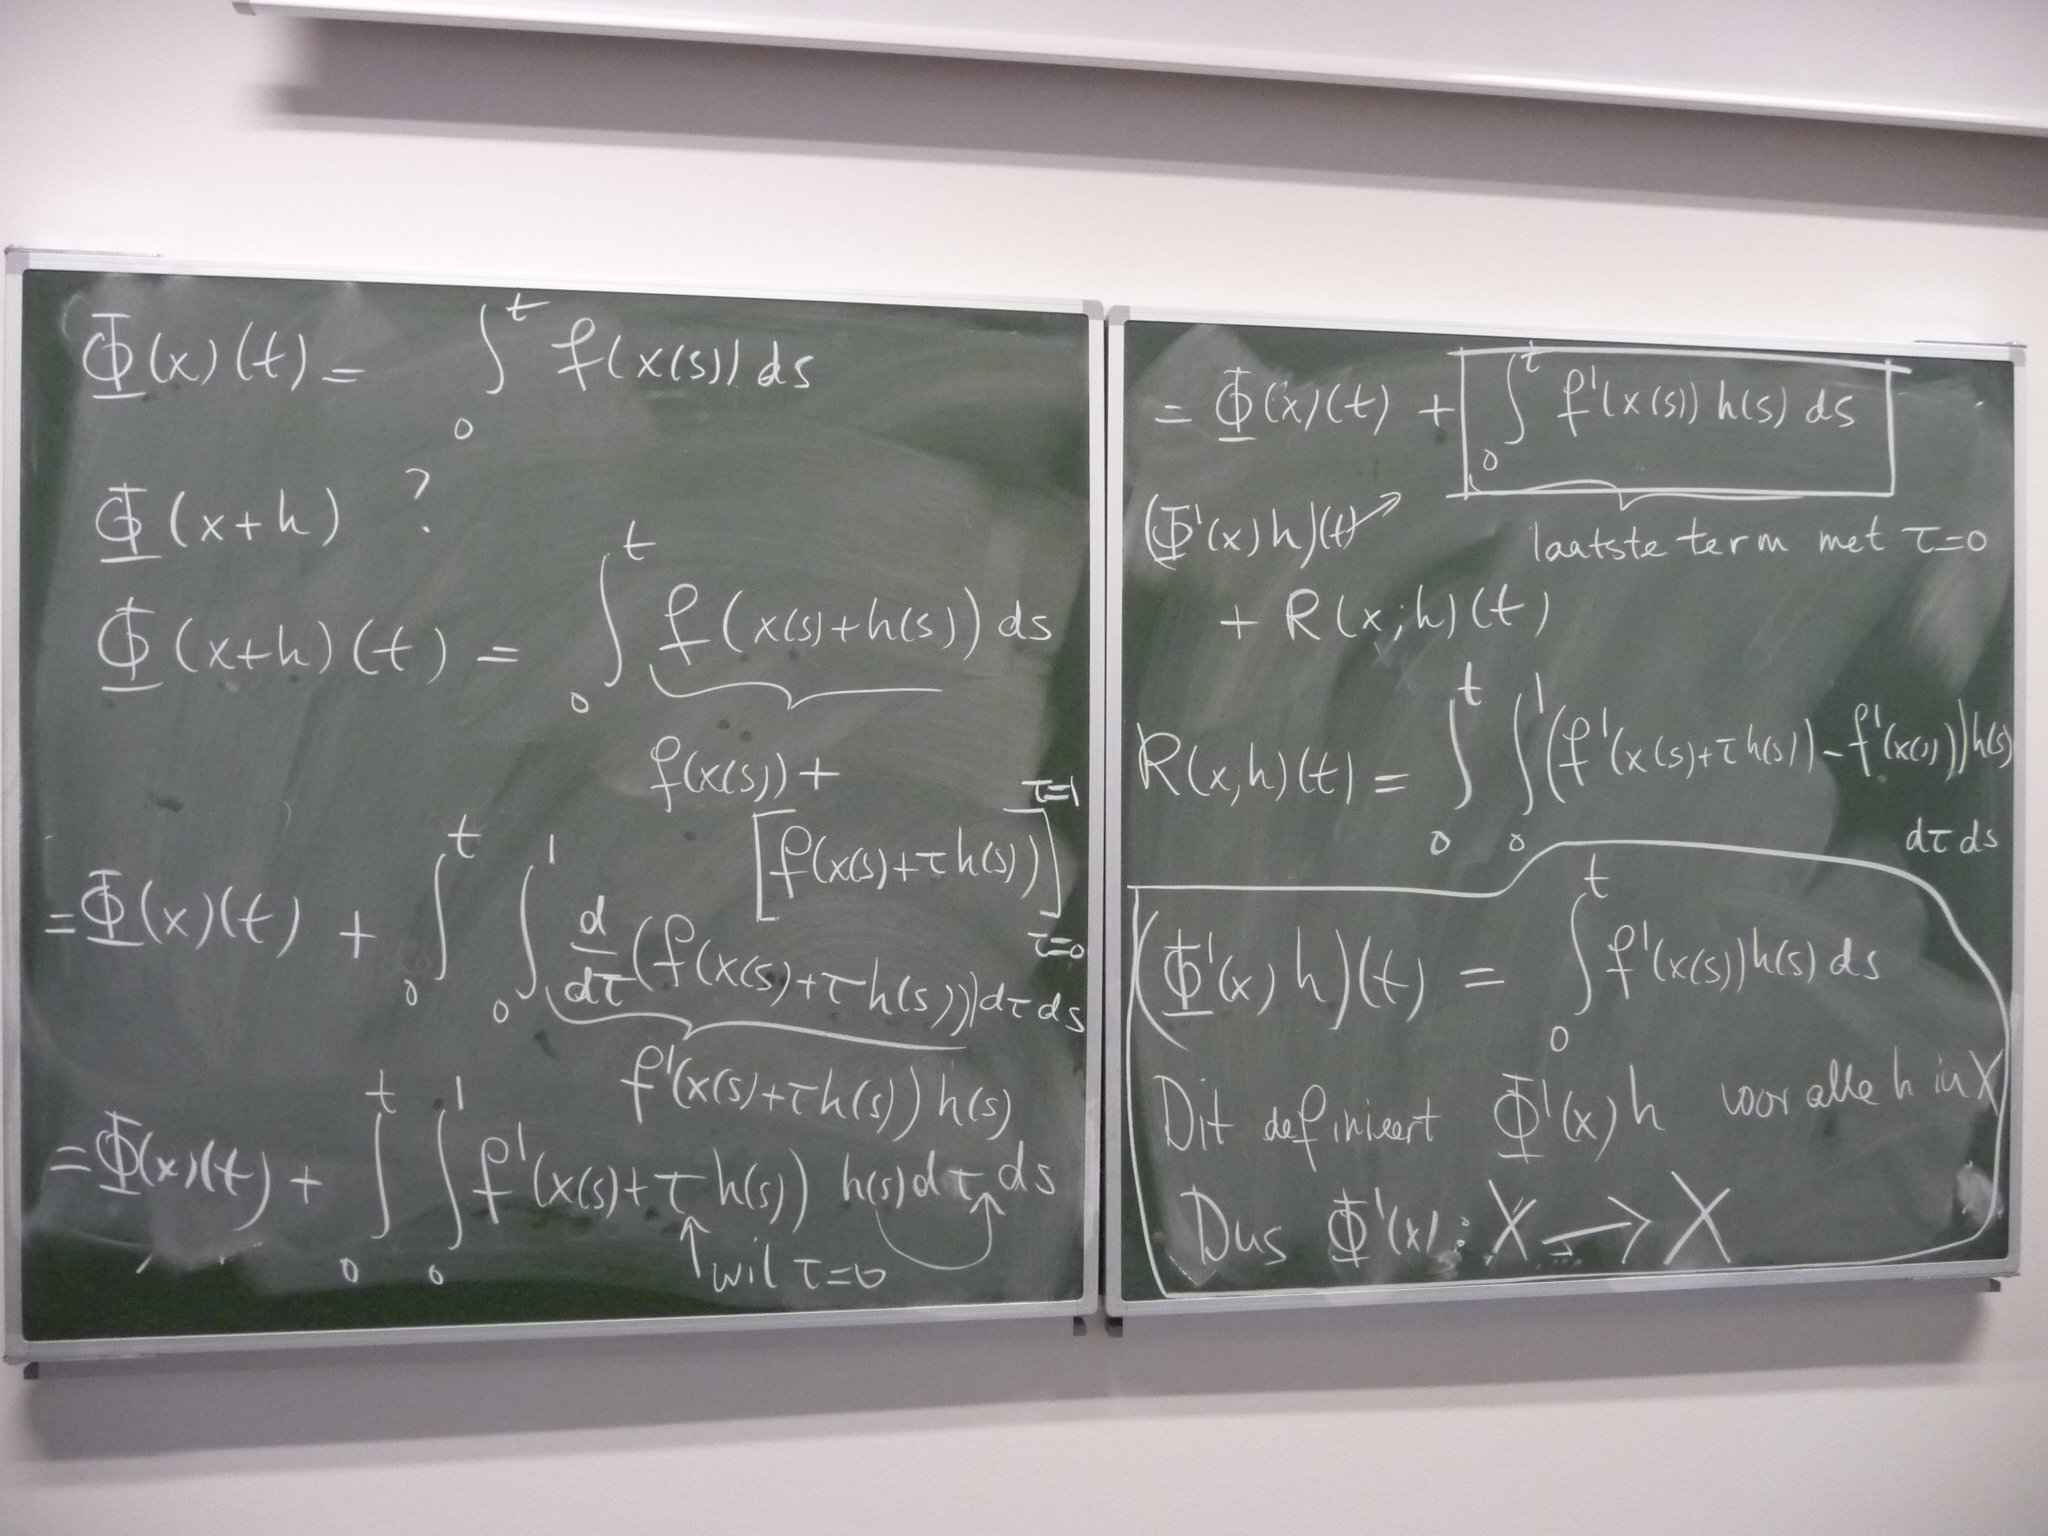 Φ(x)(t) = ∫₀ᵗ f(x(s)) ds
Φ(x+h) ?
Φ(x+h)(t) = ∫₀ᵗ f(x(s)+h(s)) ds
f(x(s)) +
[f(x(s)+τh(s))] τ=1 τ=0
= Φ(x)(t) + ∫₀ᵗ ∫₀¹ d/dτ (f(x(s)+τh(s))) dτ ds
f'(x(s)+τh(s)) h(s)
= Φ(x)(t) + ∫₀ᵗ ∫₀¹ f'(x(s)+τh(s)) h(s) dτ ds
↑ wil τ=0
= Φ(x)(t) + ∫₀ᵗ f'(x(s)) h(s) ds
(Φ'(x)h)(t) ↗
laatste term met τ=0
+ R(x;h)(t)
R(x;h)(t) = ∫₀ᵗ ∫₀¹ (f'(x(s)+τh(s)) - f'(x(s))) h(s)
dτ ds
(Φ'(x)h)(t) = ∫₀ᵗ f'(x(s)) h(s) ds
Dit definieert Φ'(x)h voor alle h in X
Dus Φ'(x) : X → X